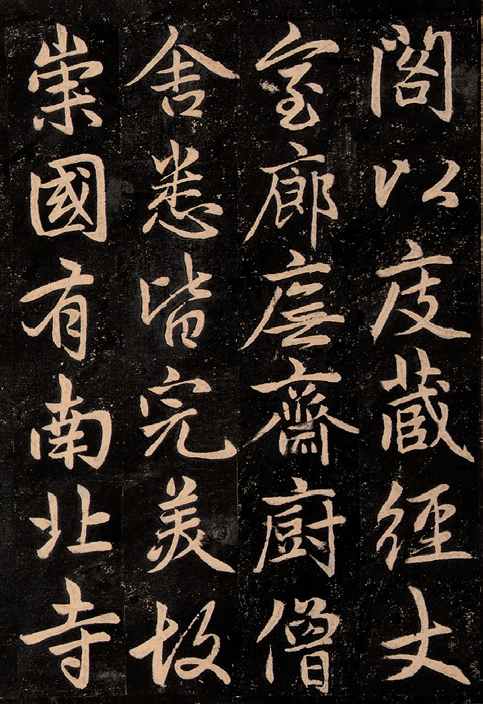 閣以庋藏經丈
室廊廡齋廚僧
舍悉皆完美故
崇國有南北寺